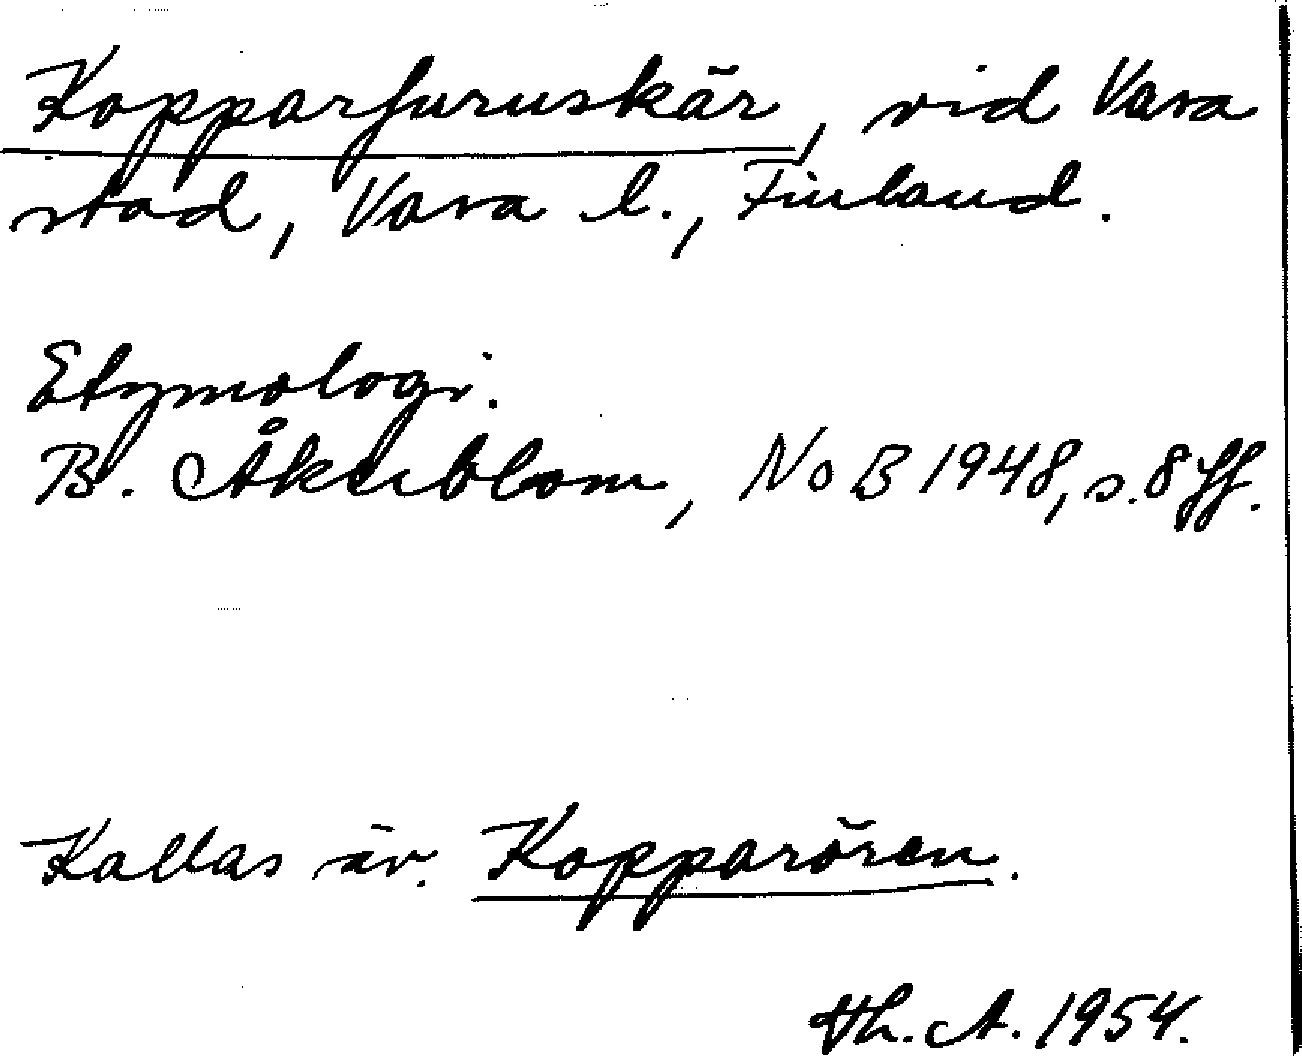 Kopparfuruskär, vid Vasa
stad, Vasa l., Finland.
Etymologi.
B. Åkerblom, NoB 1948, s. 8 ff.
Kallas äv. Kopparören.
Th. A. 1954.